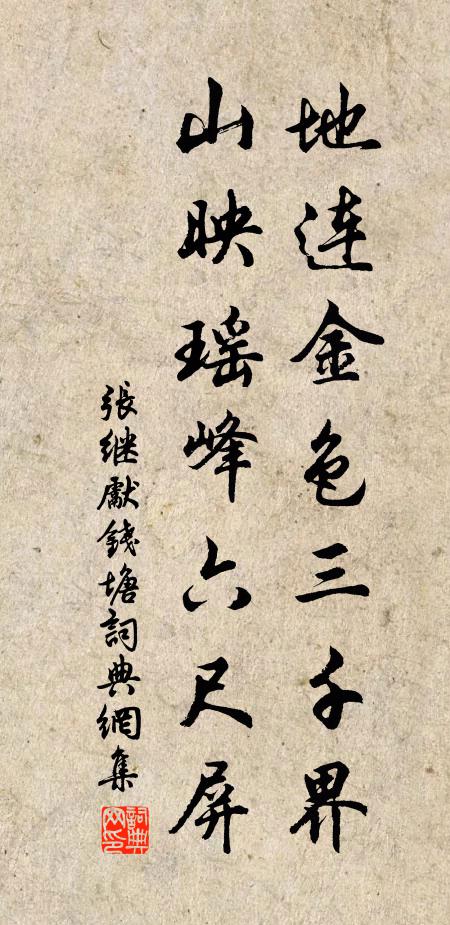 地连金色三千界
山映瑶峰六尺屏
張继獻錢塘詞典網集
詞典网印